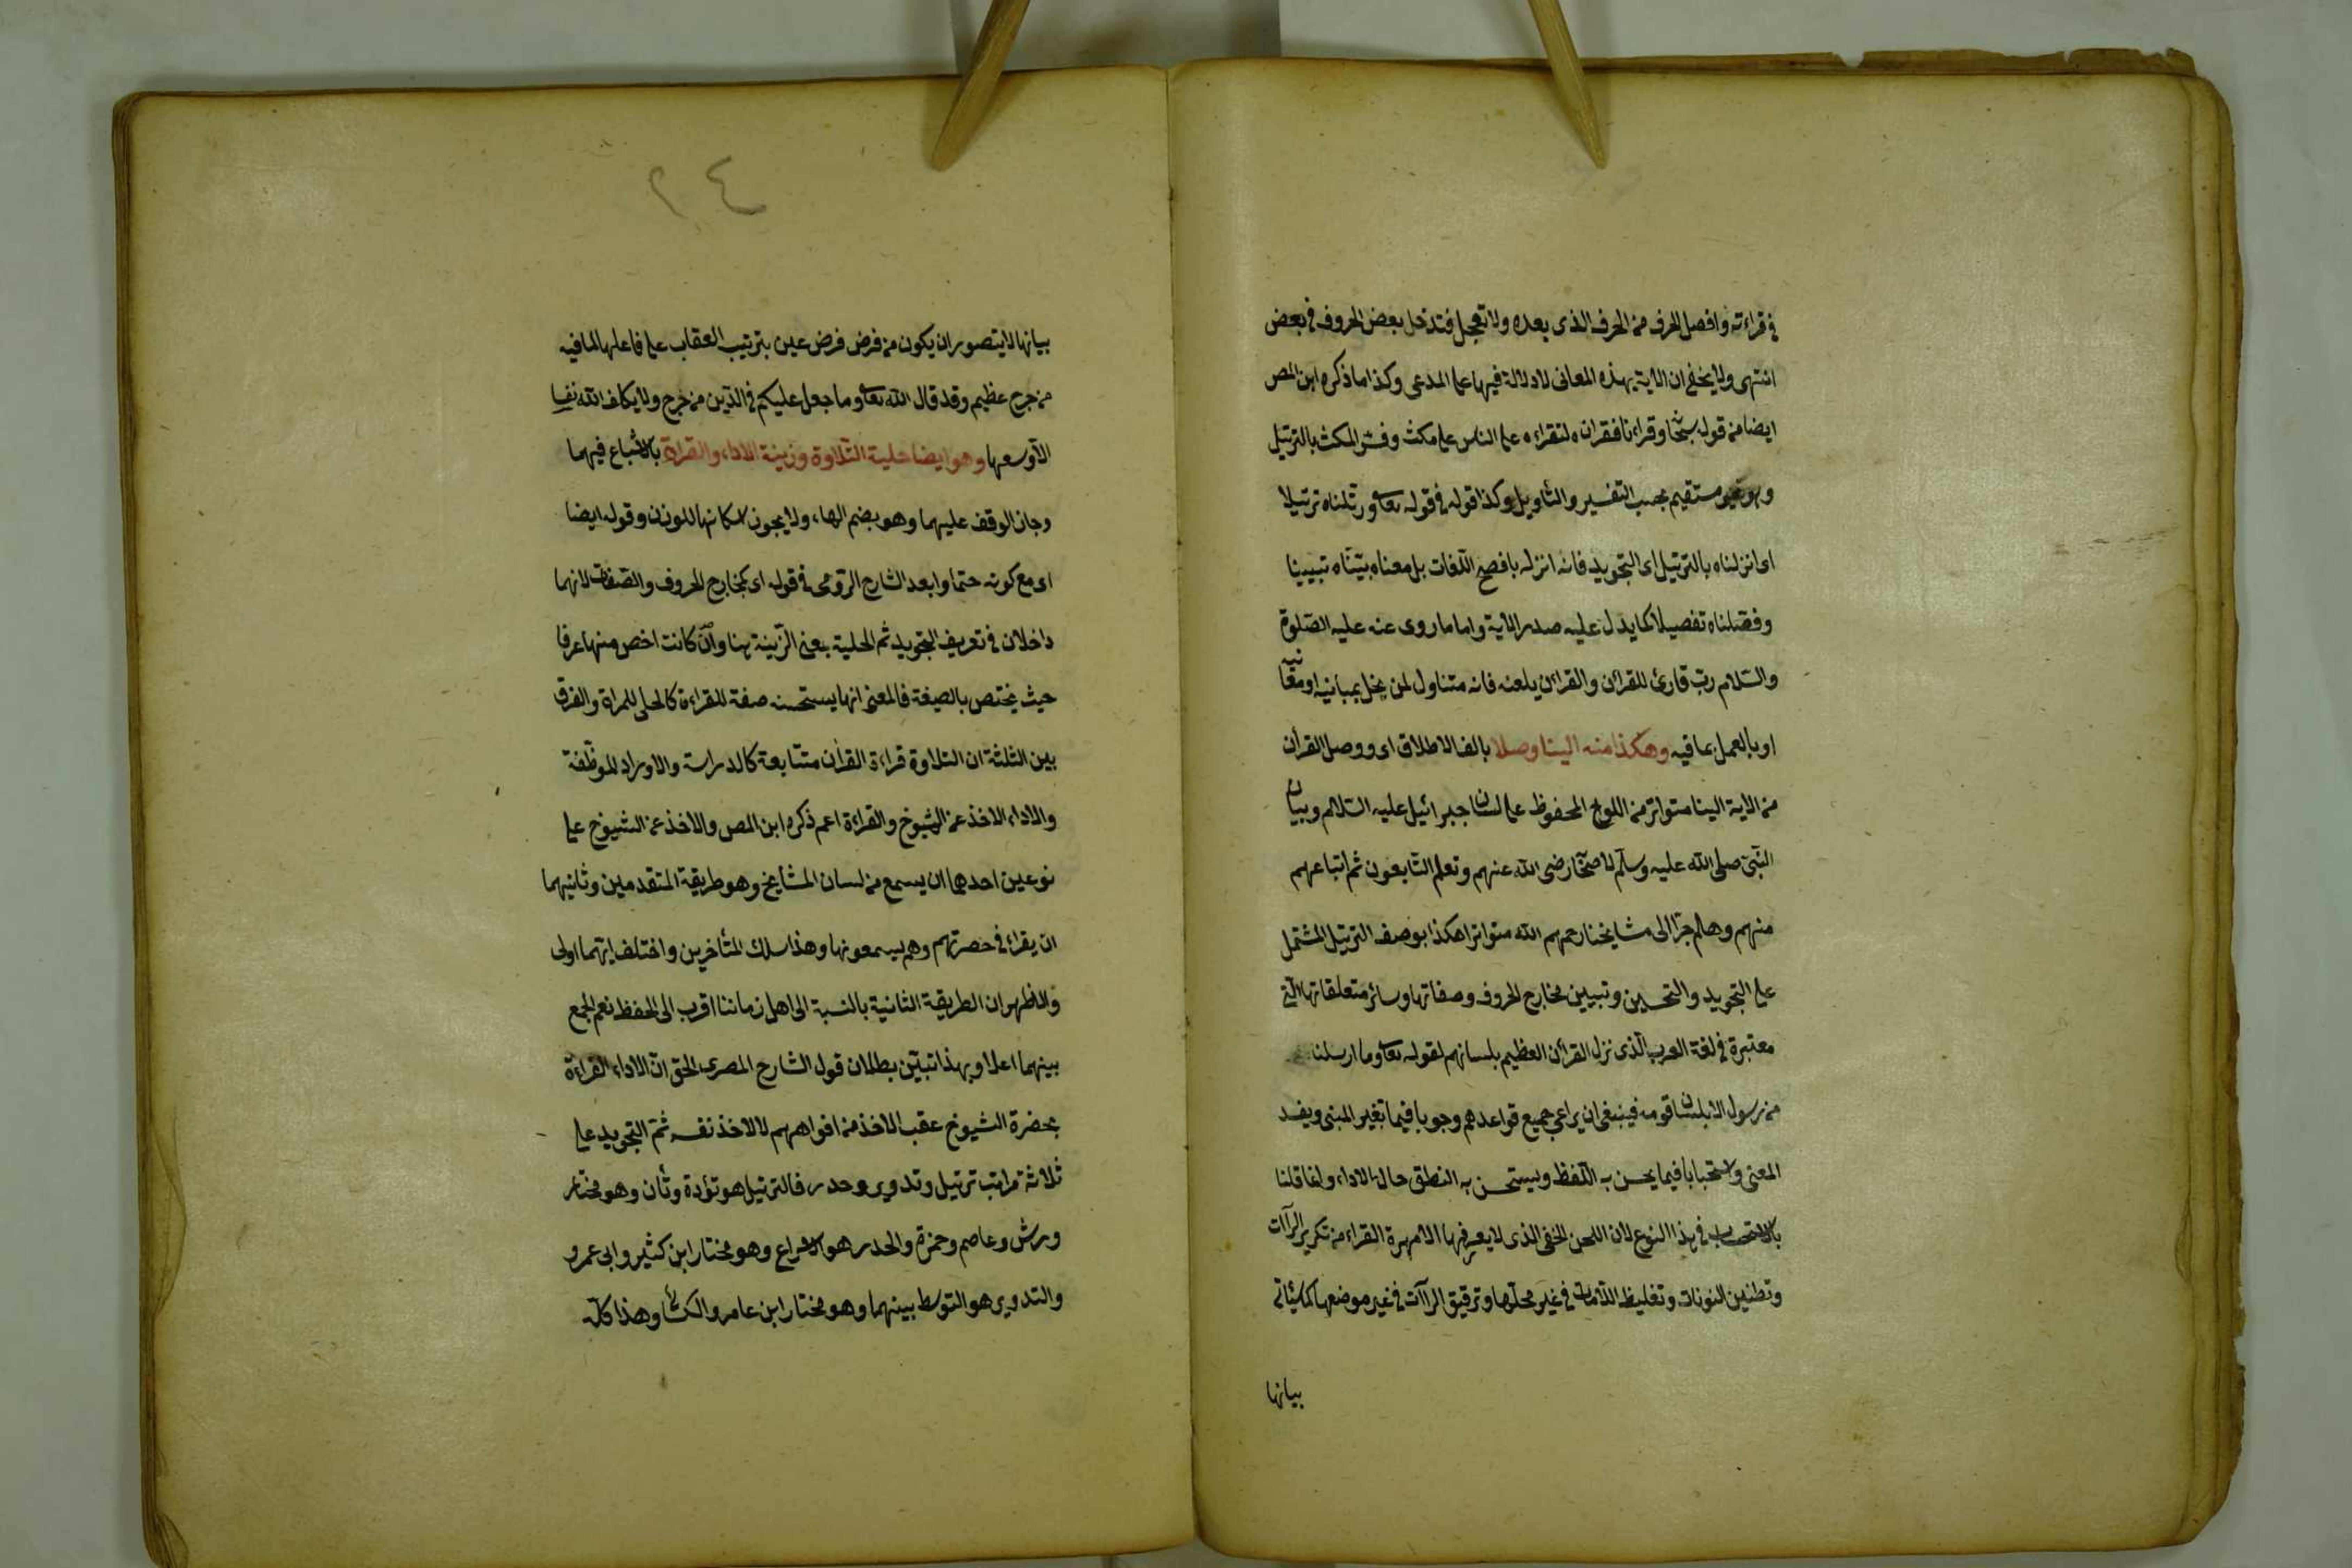 في قراءته وافصل الحرف من الحرف الذى بعده ولا تعجل فتدخل بعض الحروف في بعض
انتهى ولا يخفى ان الاية بهذه المعانى لا دلالة فيها على المدعى وكذا ما ذكره ابن المص
ايضا من قوله سبحا وقراءنا فقراناه لتقراءه على الناس على مكث وفسر المكث بالترتيل
وهو غير مستقيم بحسب التفسير والتأويل وكذا قوله في قوله تعا ورتلناه ترتيلا
اى انزلناه بالترتيل اى التجويد فانه انزله بافصح اللغات بل معناه بيّنّاه تبيينا
وفصّلناه تفصيلا كما يدل عليه صدر الاية واما ما روى عنه عليه الصّلوة
والسّلام ربّ قارئ للقرآن والقرآن يلعنه فانه متناول لمن يخل بمبانيه او معانيه
او بالعمل بما فيه وهكذا منه الينا وصلا بالف الاطلاق اى ووصل القرآن
من الاية الينا متواتر من اللوح المحفوظ على لسان جبرائيل عليه السّلام وبيان
النّبىّ صلى الله عليه وسلّم لاصحا رضى الله عنهم وتعلم التّابعون ثم اتباعهم
منهم وهلم جرّا الى مشايخنا رحمهم الله متواترا هكذا بوصف الترتيل المشتمل
على التجويد والتحسين وتبيين مخارج الحروف وصفاتها وسائر متعلقاتها الّتى
معتبرة في لغة العرب الّذى نزل القرآن العظيم بلسانهم لقوله تعا وما ارسلنا
من رسول الا بلسان قومه فينبغى ان يراعى جميع قواعدهم وجوبا فيما تغير المبنى ويفسد
المعنى واستحبابا فيما يحسن به اللّفظ ويستحسن به النطق حال الاداء وانما قلنا
بالاستحباب في هذا النوع لان اللحن الخفى الذى لا يعرفها الا مهرة القراء من تكرير الرّاآت
وتطنين النونات وتغليظ اللّامات في غير محلّها وترقيق الراآت في غير موضعها كما سيأتى
بيانها
٢٤
بيانها لا يتصور ان يكون من فرض فرض عين بترتيب العقاب على فاعلها لما فيه
من حرج عظيم وقد قال الله تعا وما جعل عليكم في الدّين من حرج ولا يكلف الله نفسا
الّا وسعها وهو ايضا حلية التّلاوة وزينة الاداء والقراة بالاشباع فيهما
وجاز الوقف عليهما وهو بضم الهاء ولا يجوز اسكانها للوزن وقوله ايضا
اى مع كونه حتما وابعد الشارح الرّومى في قوله اى كمخارج الحروف والصّفات لانهما
داخلان في تعريف التجويد ثم الحلية بمعنى الزّينة هنا وانّ كانت اخص منها عرفا
حيث يختص بالصيغة فالمعنى انها يستحسنه صفة للقراءة كالحلى للمراة والفرق
بين الثلثة ان التلاوة قراءة القرآن متتابعة كالدراسة والاوراد الموظّفة
والاداء الاخذ عن الشيوخ والقراءة اعم ذكره ابن المص والاخذ عن الشيوخ على
نوعين احدهما ان يسمع من لسان المشايخ وهو طريقة المتقدمين وثانيهما
ان يقراء في حضرتهم وهم يسمعونها وهذا سلك المتأخرين واختلف ايّهما اولى
والاظهر ان الطريقة الثانية بالنسبة الى اهل زماننا اقرب الى الحفظ نعم الجمع
بينهما اعلا وبهذا تبيّن بطلان قول الشارح المصرى الحق انّ الاداء القراءة
بحضرة الشيوخ عقب الاخذ من افواههم لا الاخذ نفسه ثمّ التجويد على
ثلاثة مراتب ترتيل وتدوير وحدر فالترتيل هو تؤدة وتأن وهو مختار
ورش وعاصم وحمزة والحدر هو الاسراع وهو مختار ابن كثير وابى عمرو
والتدوير هو التوسط بينهما وهو مختار ابن عامر والكسائى وهذا كلّه